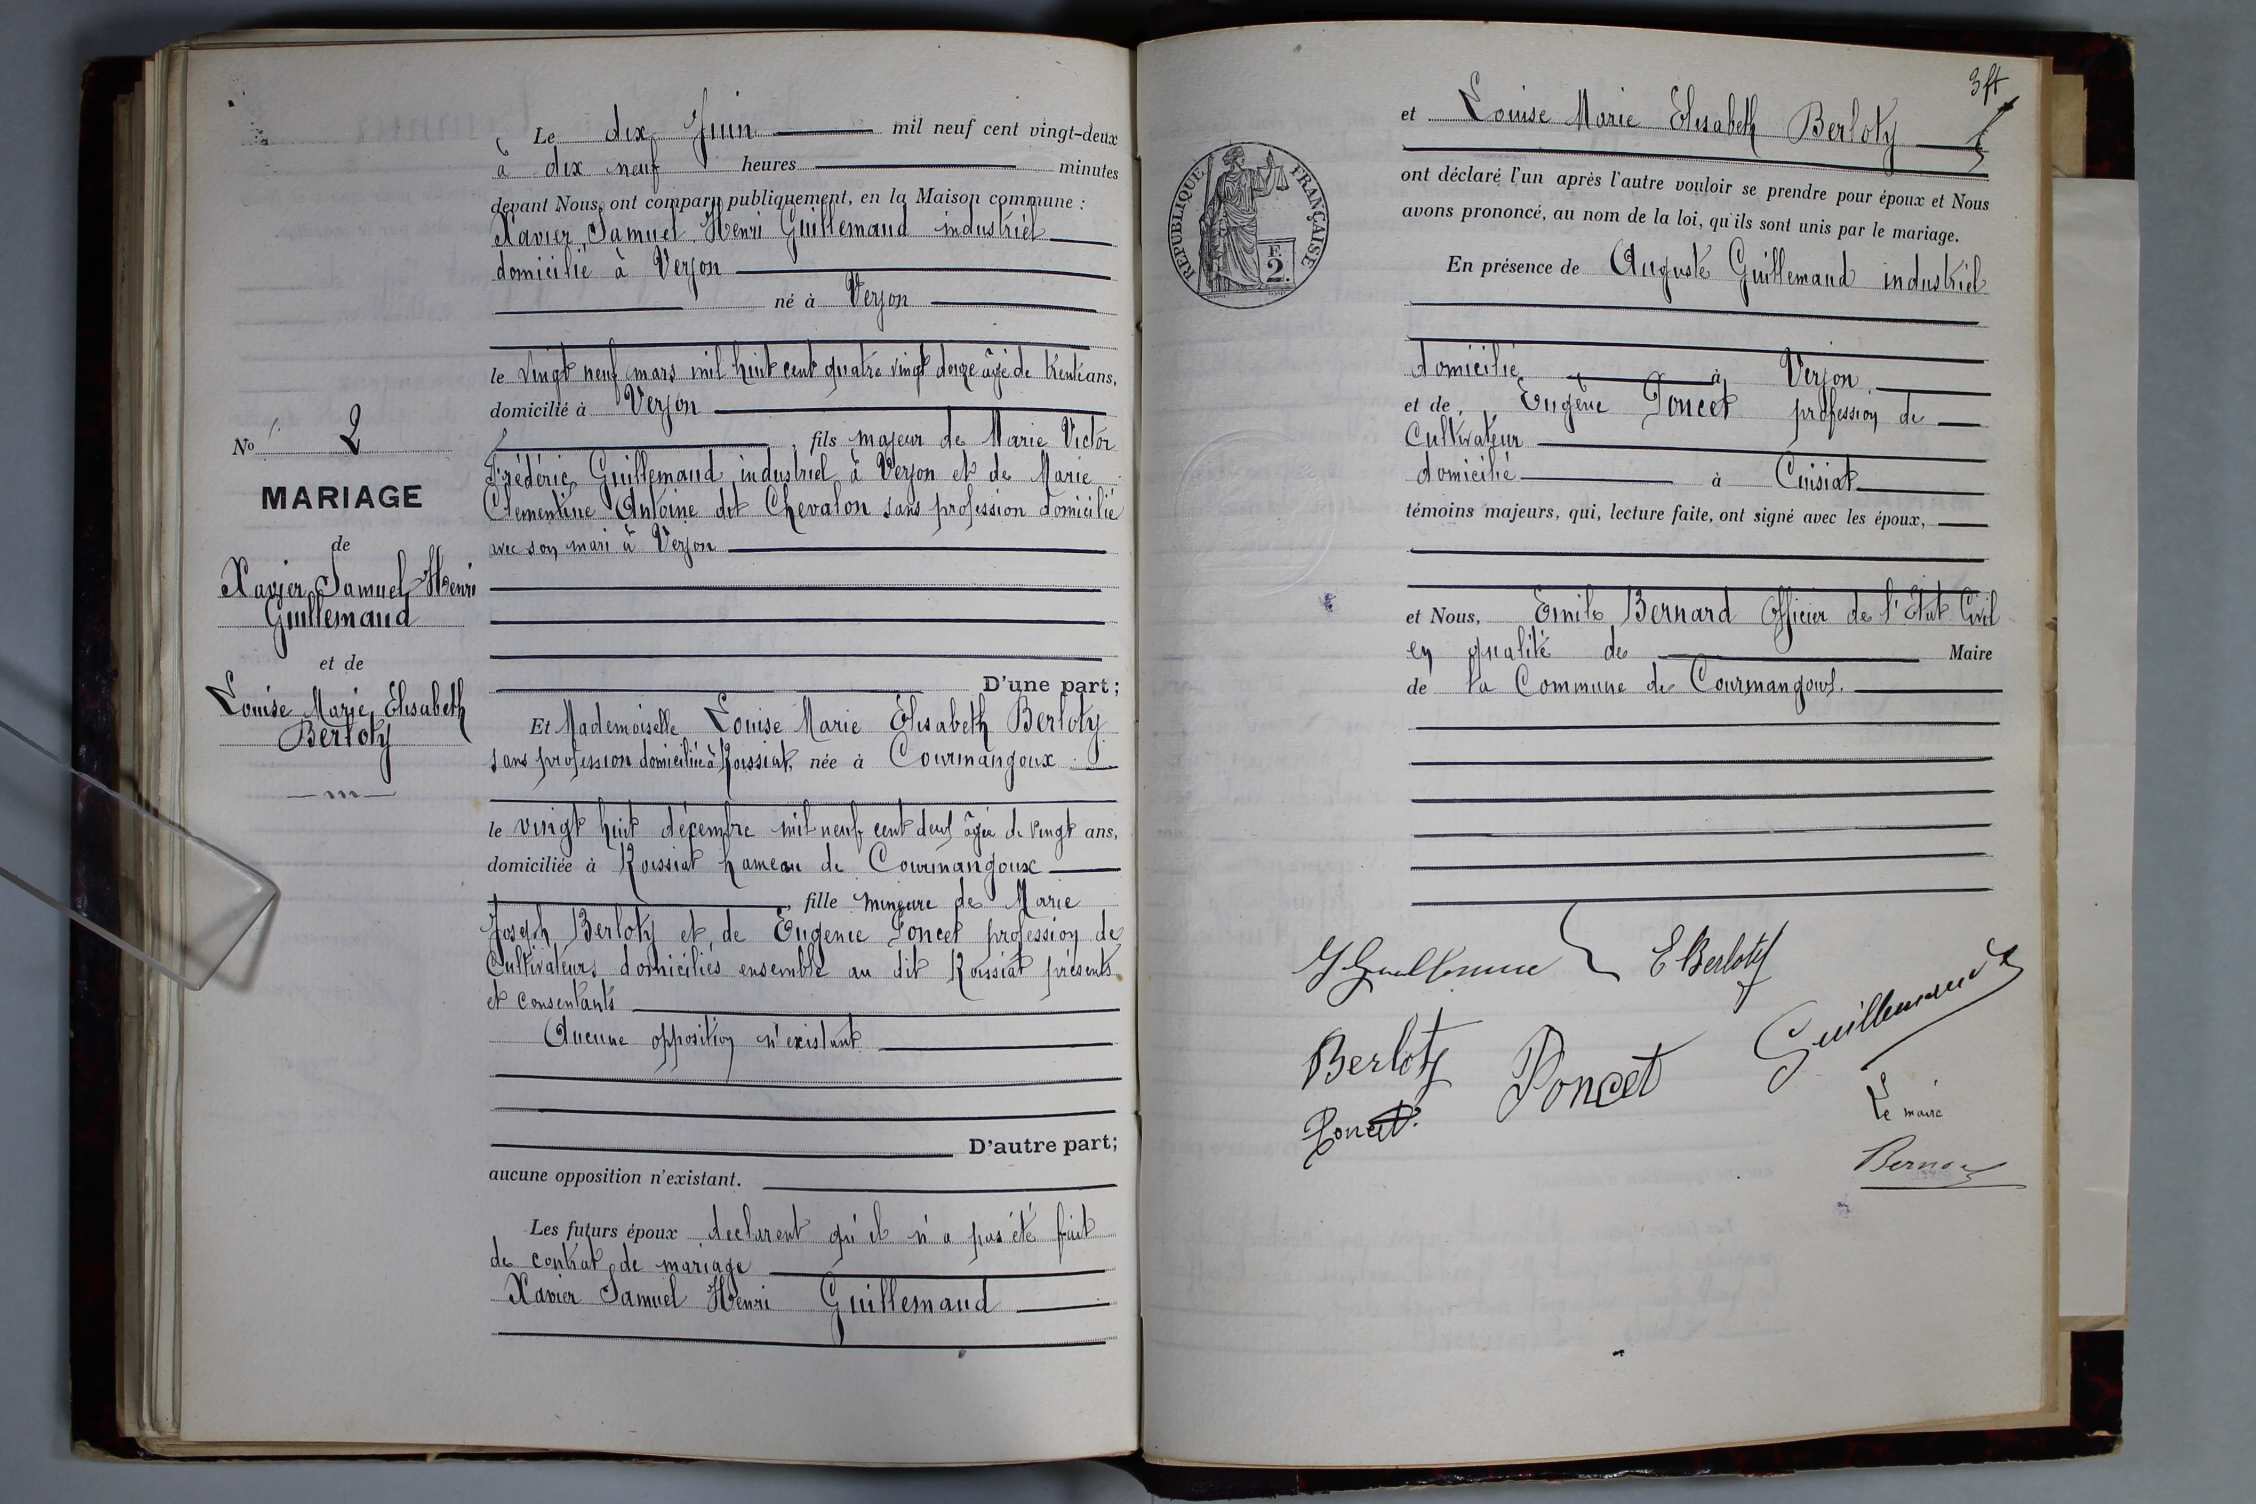 Le dix Juin mil neuf cent vingt-deux
à dix neuf heures minutes
devant Nous, ont comparu publiquement, en la Maison commune :
Xavier Samuel Henri Guillemaud industriel
domicilié à Verjon
né à Verjon
le vingt neuf mars mil huit cent quatre vingt douze âgé de trente ans,
domicilié à Verjon
fils majeur de Marie Victor
Frédéric Guillemaud industriel à Verjon et de Marie
Clementine Antoine dit Chevalon sans profession domicilié
avec son mari à Verjon
No 2
MARIAGE
de
Xavier Samuel Henri
Guillemaud
et de
Louise Marie Elisabeth
Berloty
D'une part ;
Et Mademoiselle Louise Marie Elisabeth Berloty
sans profession domiciliée à Roissiat, née à Courmangoux
le vingt huit décembre mil neuf cent deux âgée de vingt ans,
domiciliée à Roissiat hameau de Courmangoux
fille mineure de Marie
Joseph Berloty et de Eugenie Poncet profession de
Cultivateurs domiciliés ensemble au dit Roissiat présents
et consentants
Aucune opposition n'existant
D'autre part ;
aucune opposition n'existant.
Les futurs époux declarent qu'il n'a pas été fait
de contrat de mariage
Xavier Samuel Henri Guillemaud
et Louise Marie Elisabeth Berloty
ont déclaré l'un après l'autre vouloir se prendre pour époux et Nous
avons prononcé, au nom de la loi, qu'ils sont unis par le mariage.
REPUBLIQUE FRANÇAISE
F.
2.
En présence de Auguste Guillemaud industriel
domicilié à Verjon
et de Eugène Poncet profession de
Cultivateur
domicilié à Cuisiat
témoins majeurs, qui, lecture faite, ont signé avec les époux,
et Nous, Emile Bernard Officier de l'Etat Civil
en qualité de Maire
de la Commune de Courmangoux.
E Berloty
Guillemaud
Berloty Poncet
Poncet
Le maire
Bernard